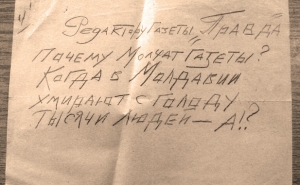 Редактору Газеты „Правда
Почему Молчат Газеты?
Когда в Молдавии
умирают с голоду
тысячи людей — А!?